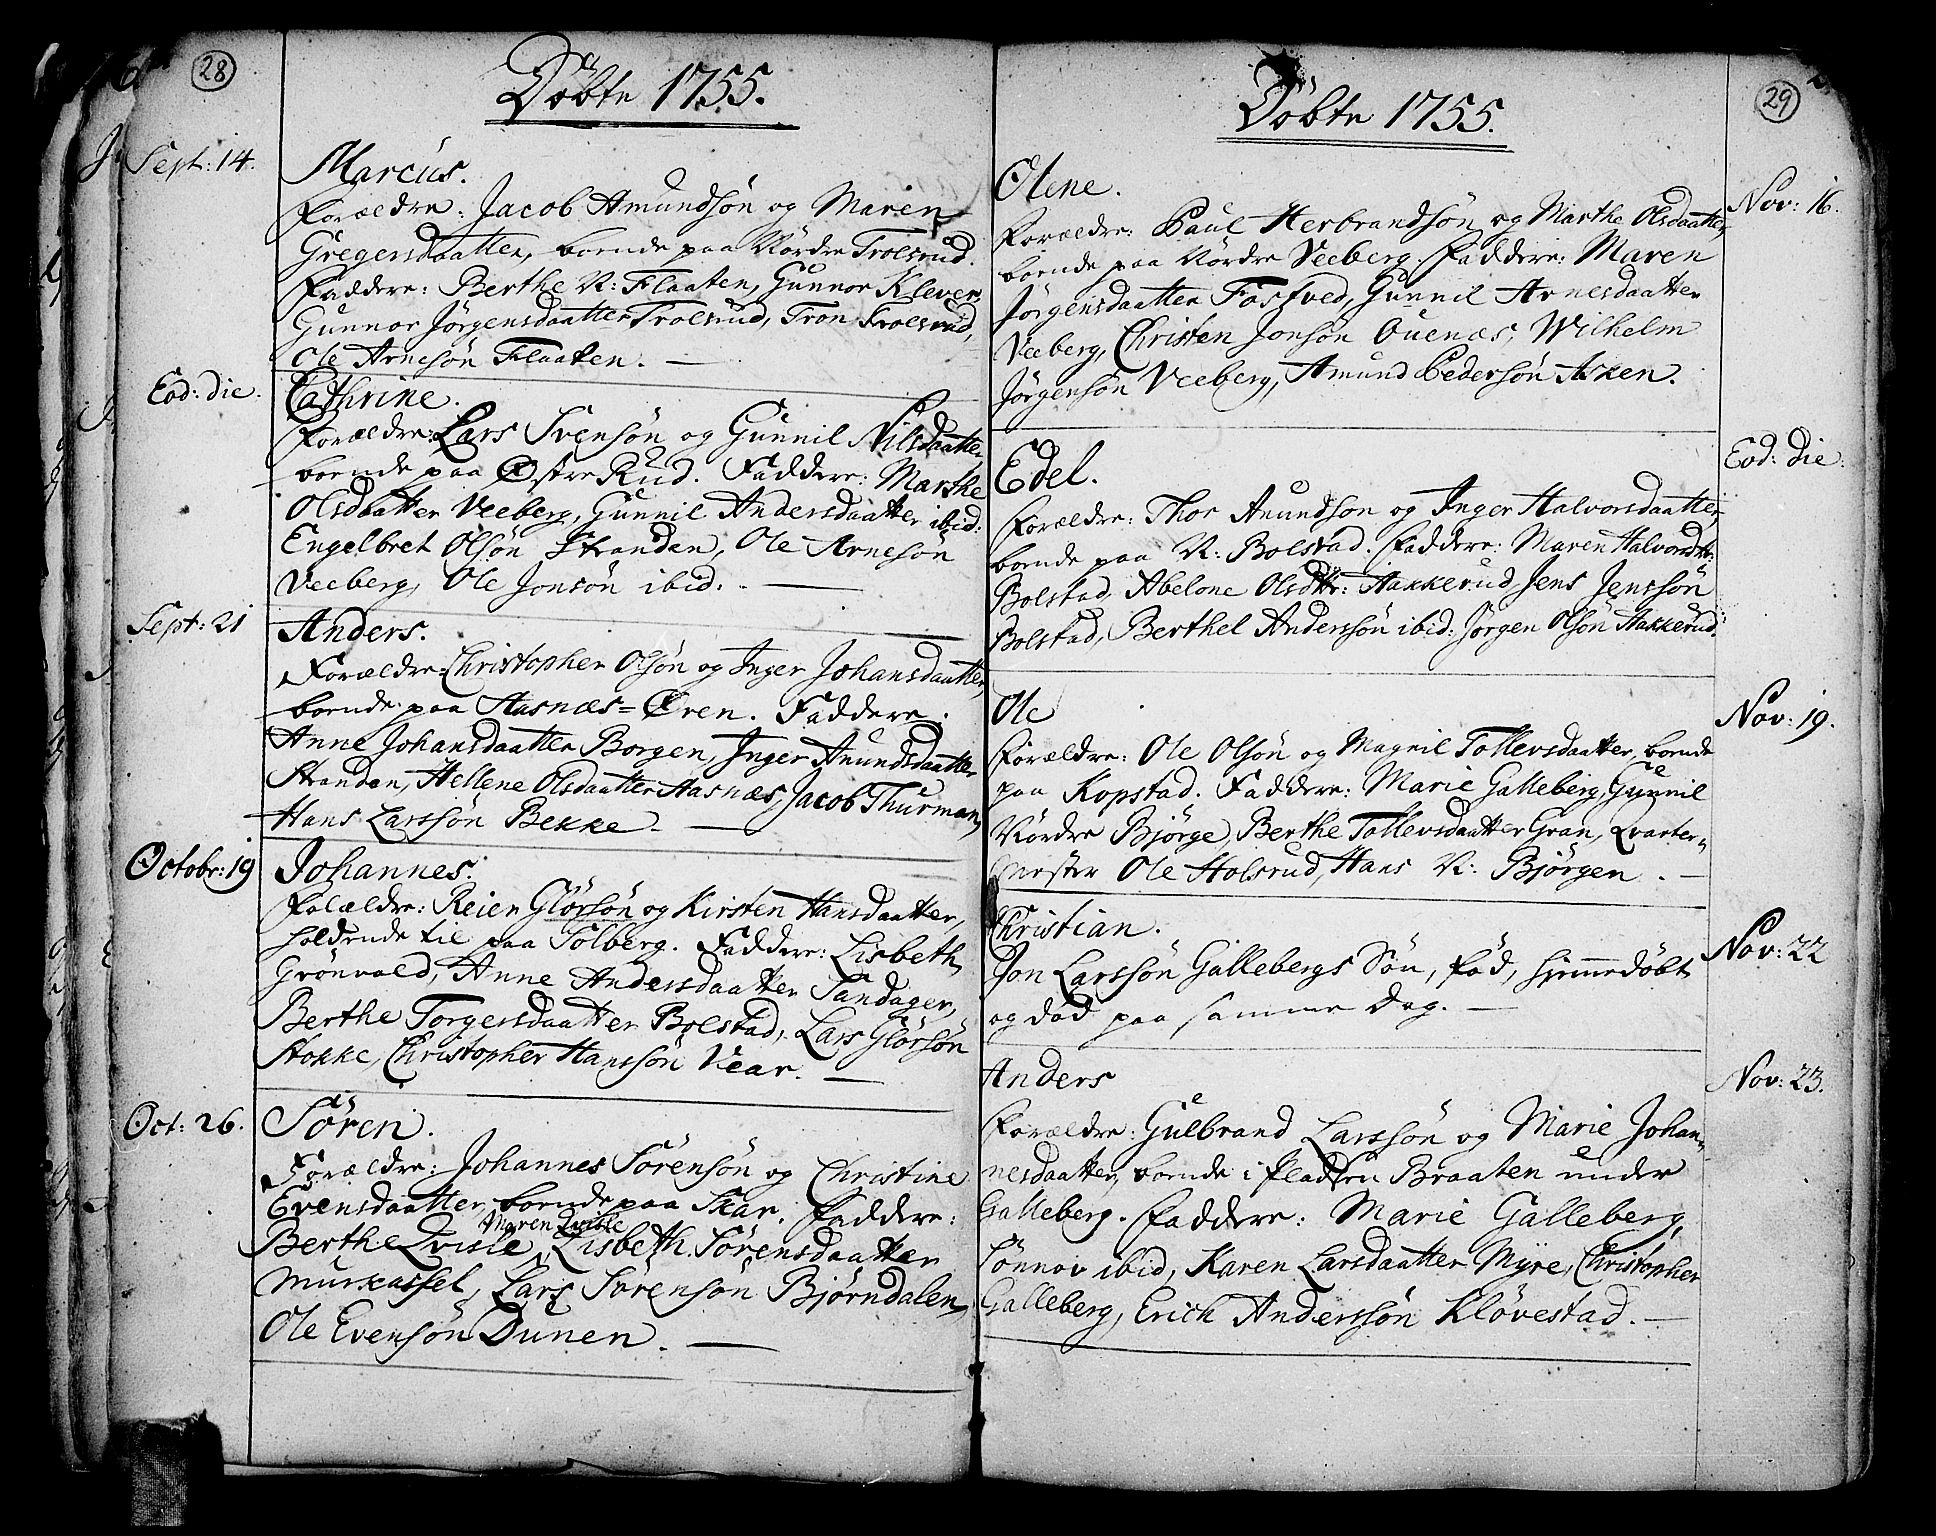 28
Döbte 1755.
Sept: 14.
Marcus.
Forældre: Jacob Amundsön og Maren
Gregersdaatter, boende paa Nördre Trolsrud.
Faddere: Berthe N: Flaaten, Gunnor Klever,
Gunnor Jörgensdaatter Trolsrud, Tron Trolsrud,
Ole Arnesön Flaaten.
Eod: die.
Cathrine.
Forældre: Lars Svensön og Gunnil Nilsdaatter
boende paa Östre Rud. Faddere: Marthe
Olsdaatter Veeberg, Gunnil Andersdaatter ibid:
Engelbret Olsön Stranden, Ole Arnesön
Veeberg, Ole Jonsön ibid.
Sept: 21
Anders.
Forældre: Christopher Olsön og Inger Johansdaatter,
boende paa Aasnæs=Ören. Faddere:
Anne Johansdaatter Borgen, Inger Anundsdaatter
Stranden, Hellene Olsdaatter Aasnæs, Jacob Thurman,
Hans Larssön Bekke.
Octobr: 19
Johannes.
Folældre: Reier Glörsön og Kirsten Hansdaatter,
holdende til paa Solberg. Faddere: Lisbeth
Grönvold, Anne Andersdaatter Sandager,
Berthe Torgersdaatter Bolstad, Lars Glörsön
Stokke, Christopher Hanssön Vear.
Oct: 26.
Sören.
Forældre: Johannes Sörensön og Christine
Evensdaatter, boende paa Skar. Faddere:
Maren Qvisle
Berthe Qvisle, Lisbeth Sörensdaatter
Murkassel, Lars Sörensön Björndalen,
Ole Evensön Dunen.
29
Döbte 1755.
Olene.
Nov: 16.
Forældre: Paul Herbrandsön og Marthe Olsdaatter,
boende paa Nördre Veeberg. Faddere: Maren
Jörgensdaatter Fostved, Gunnil Arnesdaatter
Veeberg, Christen Jonsön Ouenæs, Wilhelm
Jörgensön Veeberg, Amund Pedersön Asken.
Eod: die:
Edel.
Forældre: Thor Anundsön og Inger Halvorsdaatter,
boende paa N: Bolstad. Faddere: Maren Halvorsdtr:
Bolstad, Abelone Olsdtr: Aakkerud, Jens Jenssön
Bolstad, Berthel Anderssön ibid: Jörgen Olsön Aakkerud.
Nov: 19.
Ole
Forældre: Ole Olsön og Magnil Tollevsdaatter, boende
paa Kopstad. Faddere: Marie Galleberg, Gunnil
Nördre Björge, Berthe Tollevsdaatter Gran, Qvarteer=
mester Ole Holsrud, Hans N: Björgen.
Nov: 22
Christian.
Jon Larssön Gallebergs Sön, föd, hjemmedöbt
og död paa samme Dag.
Nov: 23.
Anders
Forældre: Gulbrand Larssön og Marie Johan=
nesdaatter, boende i pladsen Braaten under
Galleberg. Faddere: Marie Galleberg,
Sönnov ibid, Karen Larsdaatter Myre, Christopher
Galleberg, Erich Anderssön Klövestad.